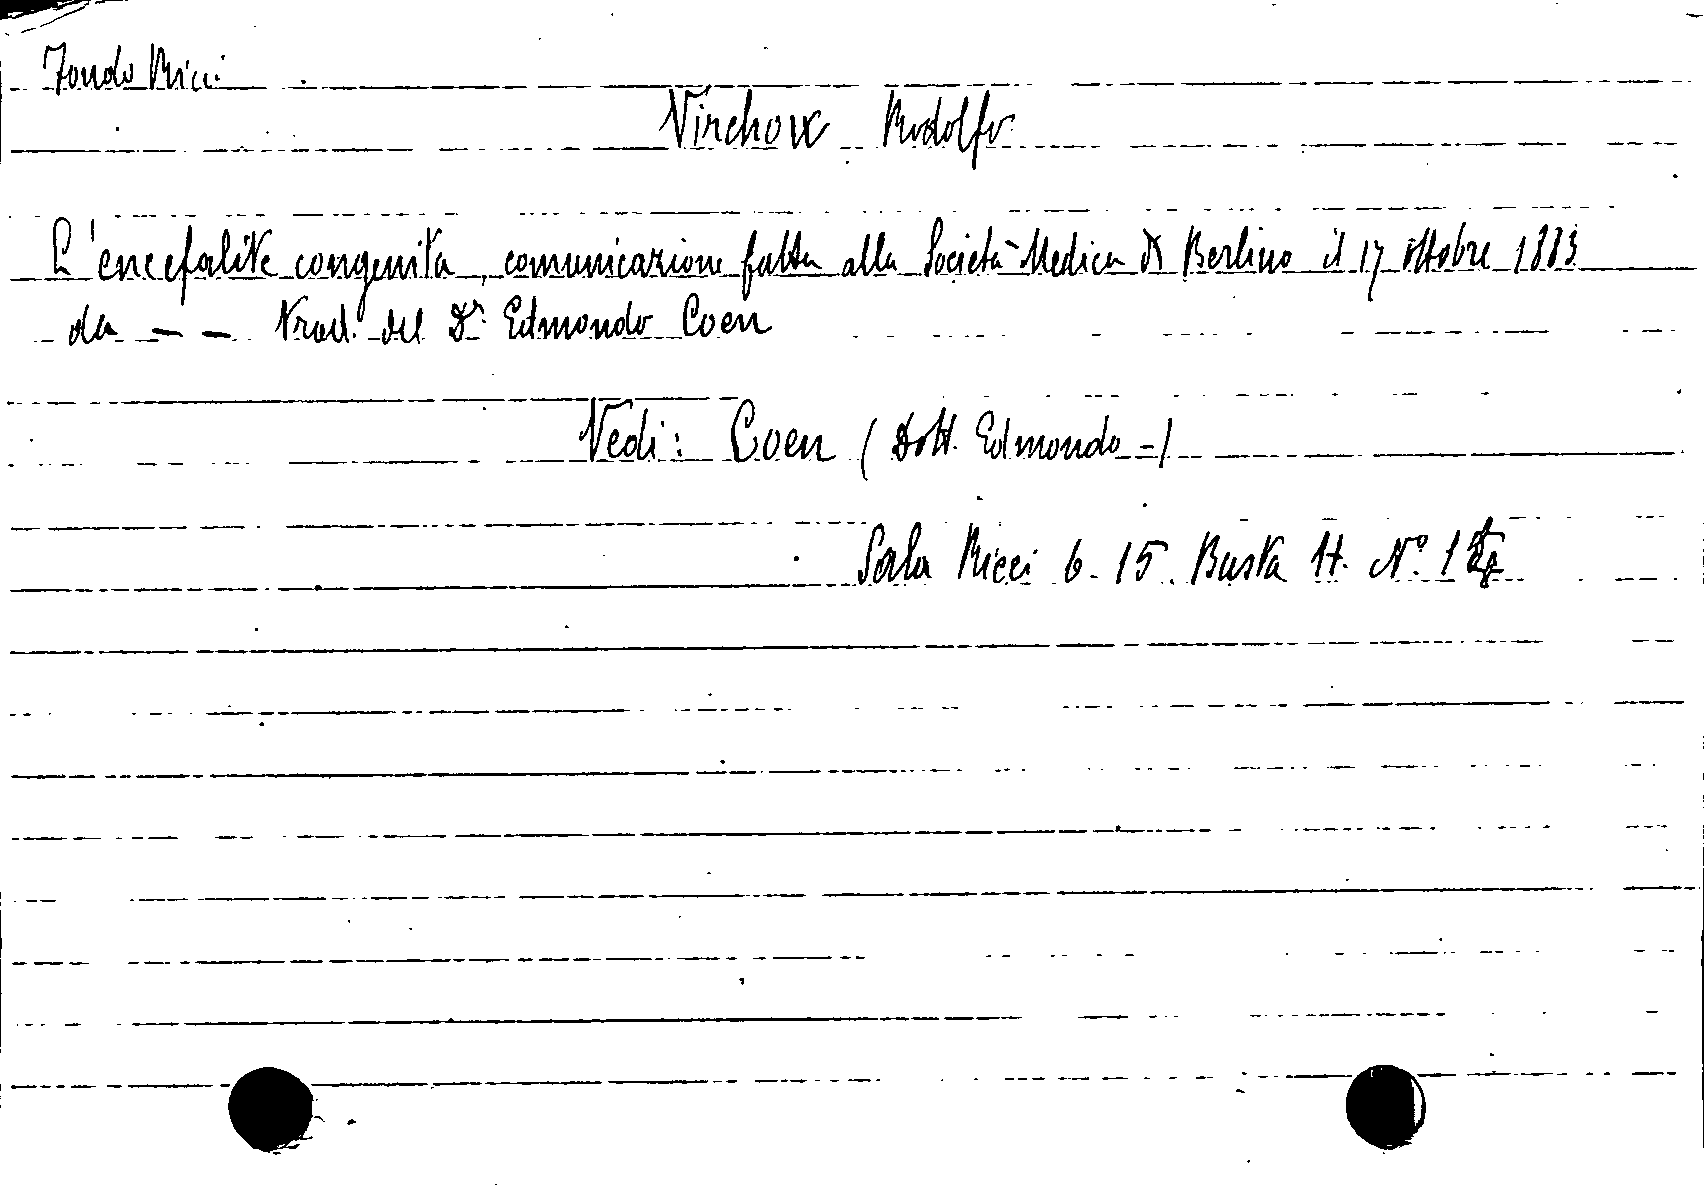 Fondo Ricci
Virchow Rodolfo
L'encefalite congenita, comunicazione fatta alla Società Medica di Berlino il 17 ottobre 1883
da — — Trad. del Dr. Edmondo Coen
Vedi: Coen (Dott. Edmondo -)
Sala Ricci 6. 15. Busta H. N°.